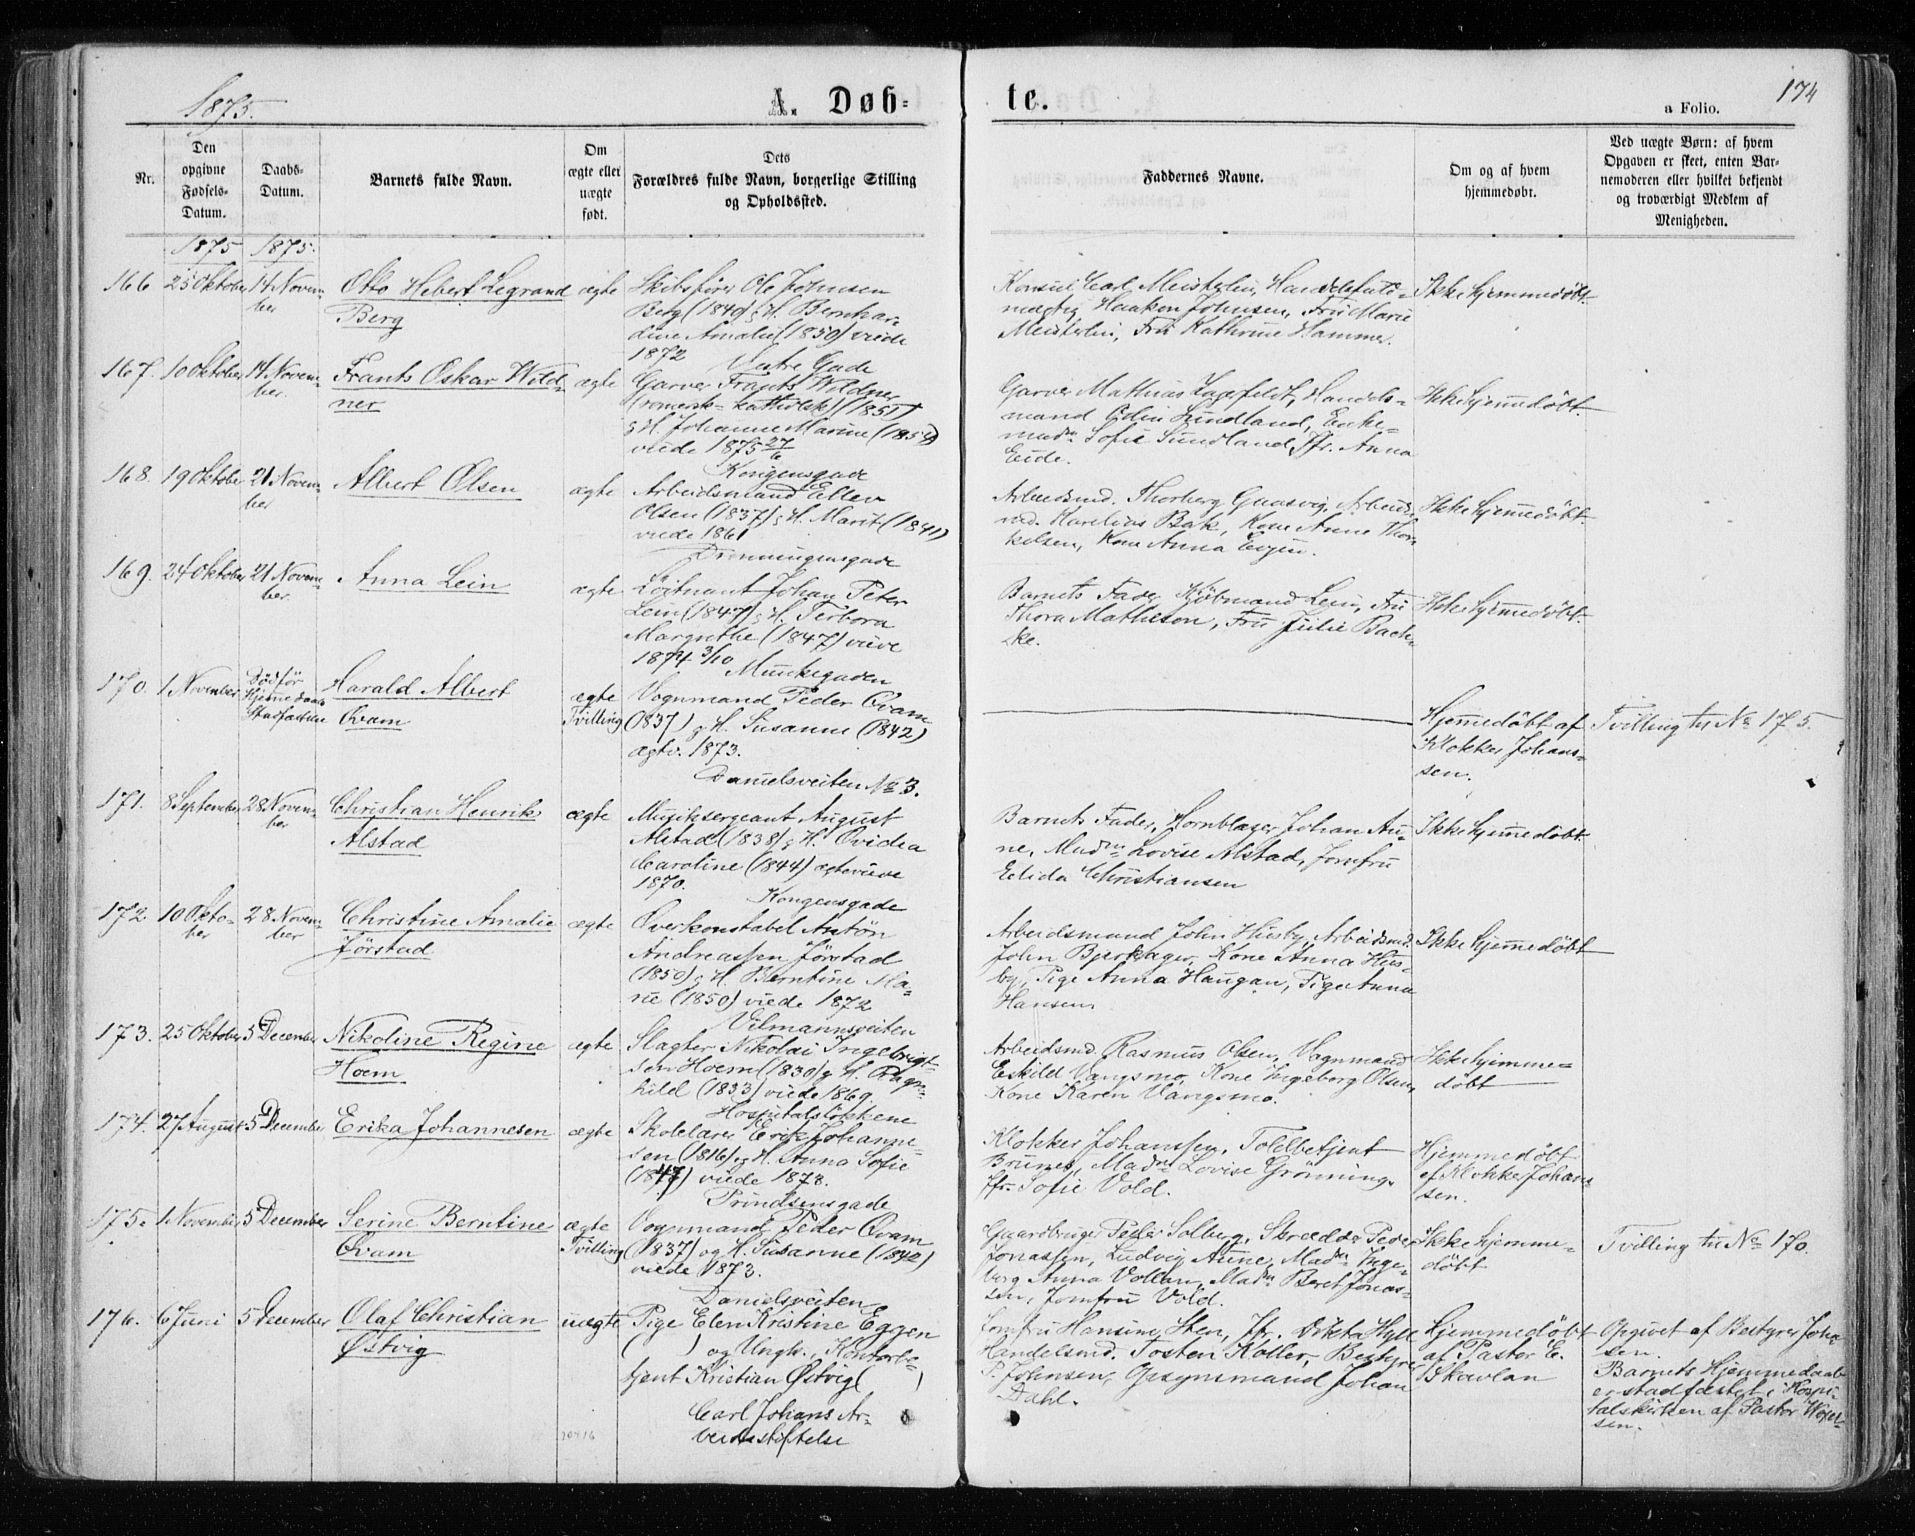 1875.
A. Døb-
te.
174
a Folio.
Nr.
Den
opgivne
Fødsels-
Datum.
Daabs-
Datum.
Barnets fulde Navn.
Om
ægte eller
uægte
født.
Dets
Forældres fulde Navn, borgerlige Stilling
og Opholdssted.
Faddernes Navne.
Om og af hvem
hjemmedøbt.
Ved uægte Børn: af hvem
Opgaven er skeet, enten Bar-
nemoderen eller hvilket bekjendt
og troværdigt Medlem af
Menigheden.
1875 1875.
166 25 Oktober 14 Novem-
ber
Otto Hebert Legrand
Berg
ægte
Skibsfører Ole Johnsen
Berg (1840) & H. Bernhar-
dine Amalie (1850) viede
1872
Konsul Carl Meisterlin, Handelsfuld-
mægtig Haakon Johnsen, Fru Marie
Meisterlin, Fru Kathrine Hammer.
Ikke hjemmedøbt.
167. 10 Oktober 14 Novem-
ber.
Frants Oskar Wild-
ner
ægte
Gade
Garver Frants Wildner
(romersk-katholsk) (1851)
& H. Johanne Marine (1854)
viede 1875 27/6
Garver Mathias Lagerfeldt, Handels-
mand Odin Sundland, Enke-
madm Sofie Sundland, Jfr. Anna
Eide.
Ikke hjemmedøbt.
168. 19 Oktober 21 Novem-
ber
Albert Olsen
ægte
Kongensgade
Arbeidsmand Eller
Olsen (1837) & H. Marit (1841)
viede 1861
Arbeidsmd. Thorberg Gaasvig, Arbeids-
md. Karelius Bak, Kone Anne Thor-
kelsen, Kone Anna Evjen.
Ikke hjemmedøbt
169. 24 Oktober 21 Novem-
ber.
Anna Lein
ægte
Dronningensgade
Løitnant Johan Peter
Lein (1847) & H. Terbora
Margrethe (1847) viede
1874 3/10
Barnets Fader, Kjøbmand Lein, Fru
Thora Matheson, Fru Julie Bach-
ke.
Ikke hjemmedøbt.
170. 1 November
Død før
Hjemmedaabs
Stadfæstelse
Harald Albert
Qvam
ægte
Tvilling
Munkegaden
Vognmand Peder Qvam
(1837) & H. Susanne (1842)
ægtv. 1873.
Hjemmedøbt af
Klokker Johans-
sen.
Tvilling til No 175.
171. 8 September 28 Novem-
ber
Christian Henrik
Alstad
ægte
Danielsveiten No 3.
Musiksergeant August
Alstad (1838) & H. Ovidia
Caroline (1844) ægteviede
1870.
Barnets Fader, Hornblæser Johan Au-
ne, Madm Lovise Alstad, Jomfru
Elida Christiansen
Ikke hjemmedøbt.
172. 10 Okto-
ber
28 Novem-
ber
Christine Amalie
Jørstad
ægte
Kongensgade
Overkonstabel Anton
Andreassen Jørstad
(1850) & H. Berntine Ma-
rie (1850) viede 1872
Arbeidsmand John Husby, Arbeidsmd.
John Bjerkager, Kone Anna Hus-
by, Pige Anna Haugan, Pige Anna
Hansen.
Ikke hjemmedøbt
173. 25 Oktober 5 December
Nikoline Regine
Hoem
ægte
Vilmannsveiten
Slagter Nikolai Ingebrigt-
sen Hoem (1830) & H. Ragn-
hild (1833) viede 1869.
Arbeidsmd. Rasmus Olsen, Vognmand
Eskild Vangsmo, Kone Ingeborg Olsen,
Kone Karen Vangsmo.
Ikke hjemme-
døbt
174. 27 August 5 December
Erika Johannesen
ægte
Hospitalsløkkene
Skolelærer Erik Johanne-
sen (1816) og H. Anna Sofie
(1847) viede 1873.
Klokker Johanssen, Toldbetjent
Brunes, Madm Lovise Grönning,
Jfr. Sofie Vold.
Hjemmedøbt
af Klokker Johans-
sen.
175. 1 November 5 December
Serine Berntine
Qvam
ægte
Tvilling
Prindsensgade
Vognmand Peder Qvam
(1837) og H. Susanne (1842)
viede 1873.
Gaardbruger Peder Solberg, Skrædder Peder
Jonassen, Ludvig Aune, Madm Inge-
borg Anna Vollan, Madm Beret Jonas-
sen, Jomfru Vold.
Ikke hjemme-
døbt
Tvilling til No 170.
176. 6 Juni 5 December
Olaf Christian
Østvig
uægte
Danielsveiten
Pige Elen Kristine Eggen
( ) og Ungk., Kontorbe-
tjent Kristian Østvig ( )
Carl Johans Ar-
beidsstiftelse
Jomfru Hansine Sten, Jfr. Dikta Hyll
Handelsmd. Tosten Koller, Bestyrer
P. Johnsen, Opsynsmand Johan
Dahl.
Hjemmedøbt
af Pastor E.
Skavlan
Opgivet af Bestyrer John-
sen.
Barnets Hjemmedaab
er stadfæstet i Hospi-
talskirken af Pastor
sen.